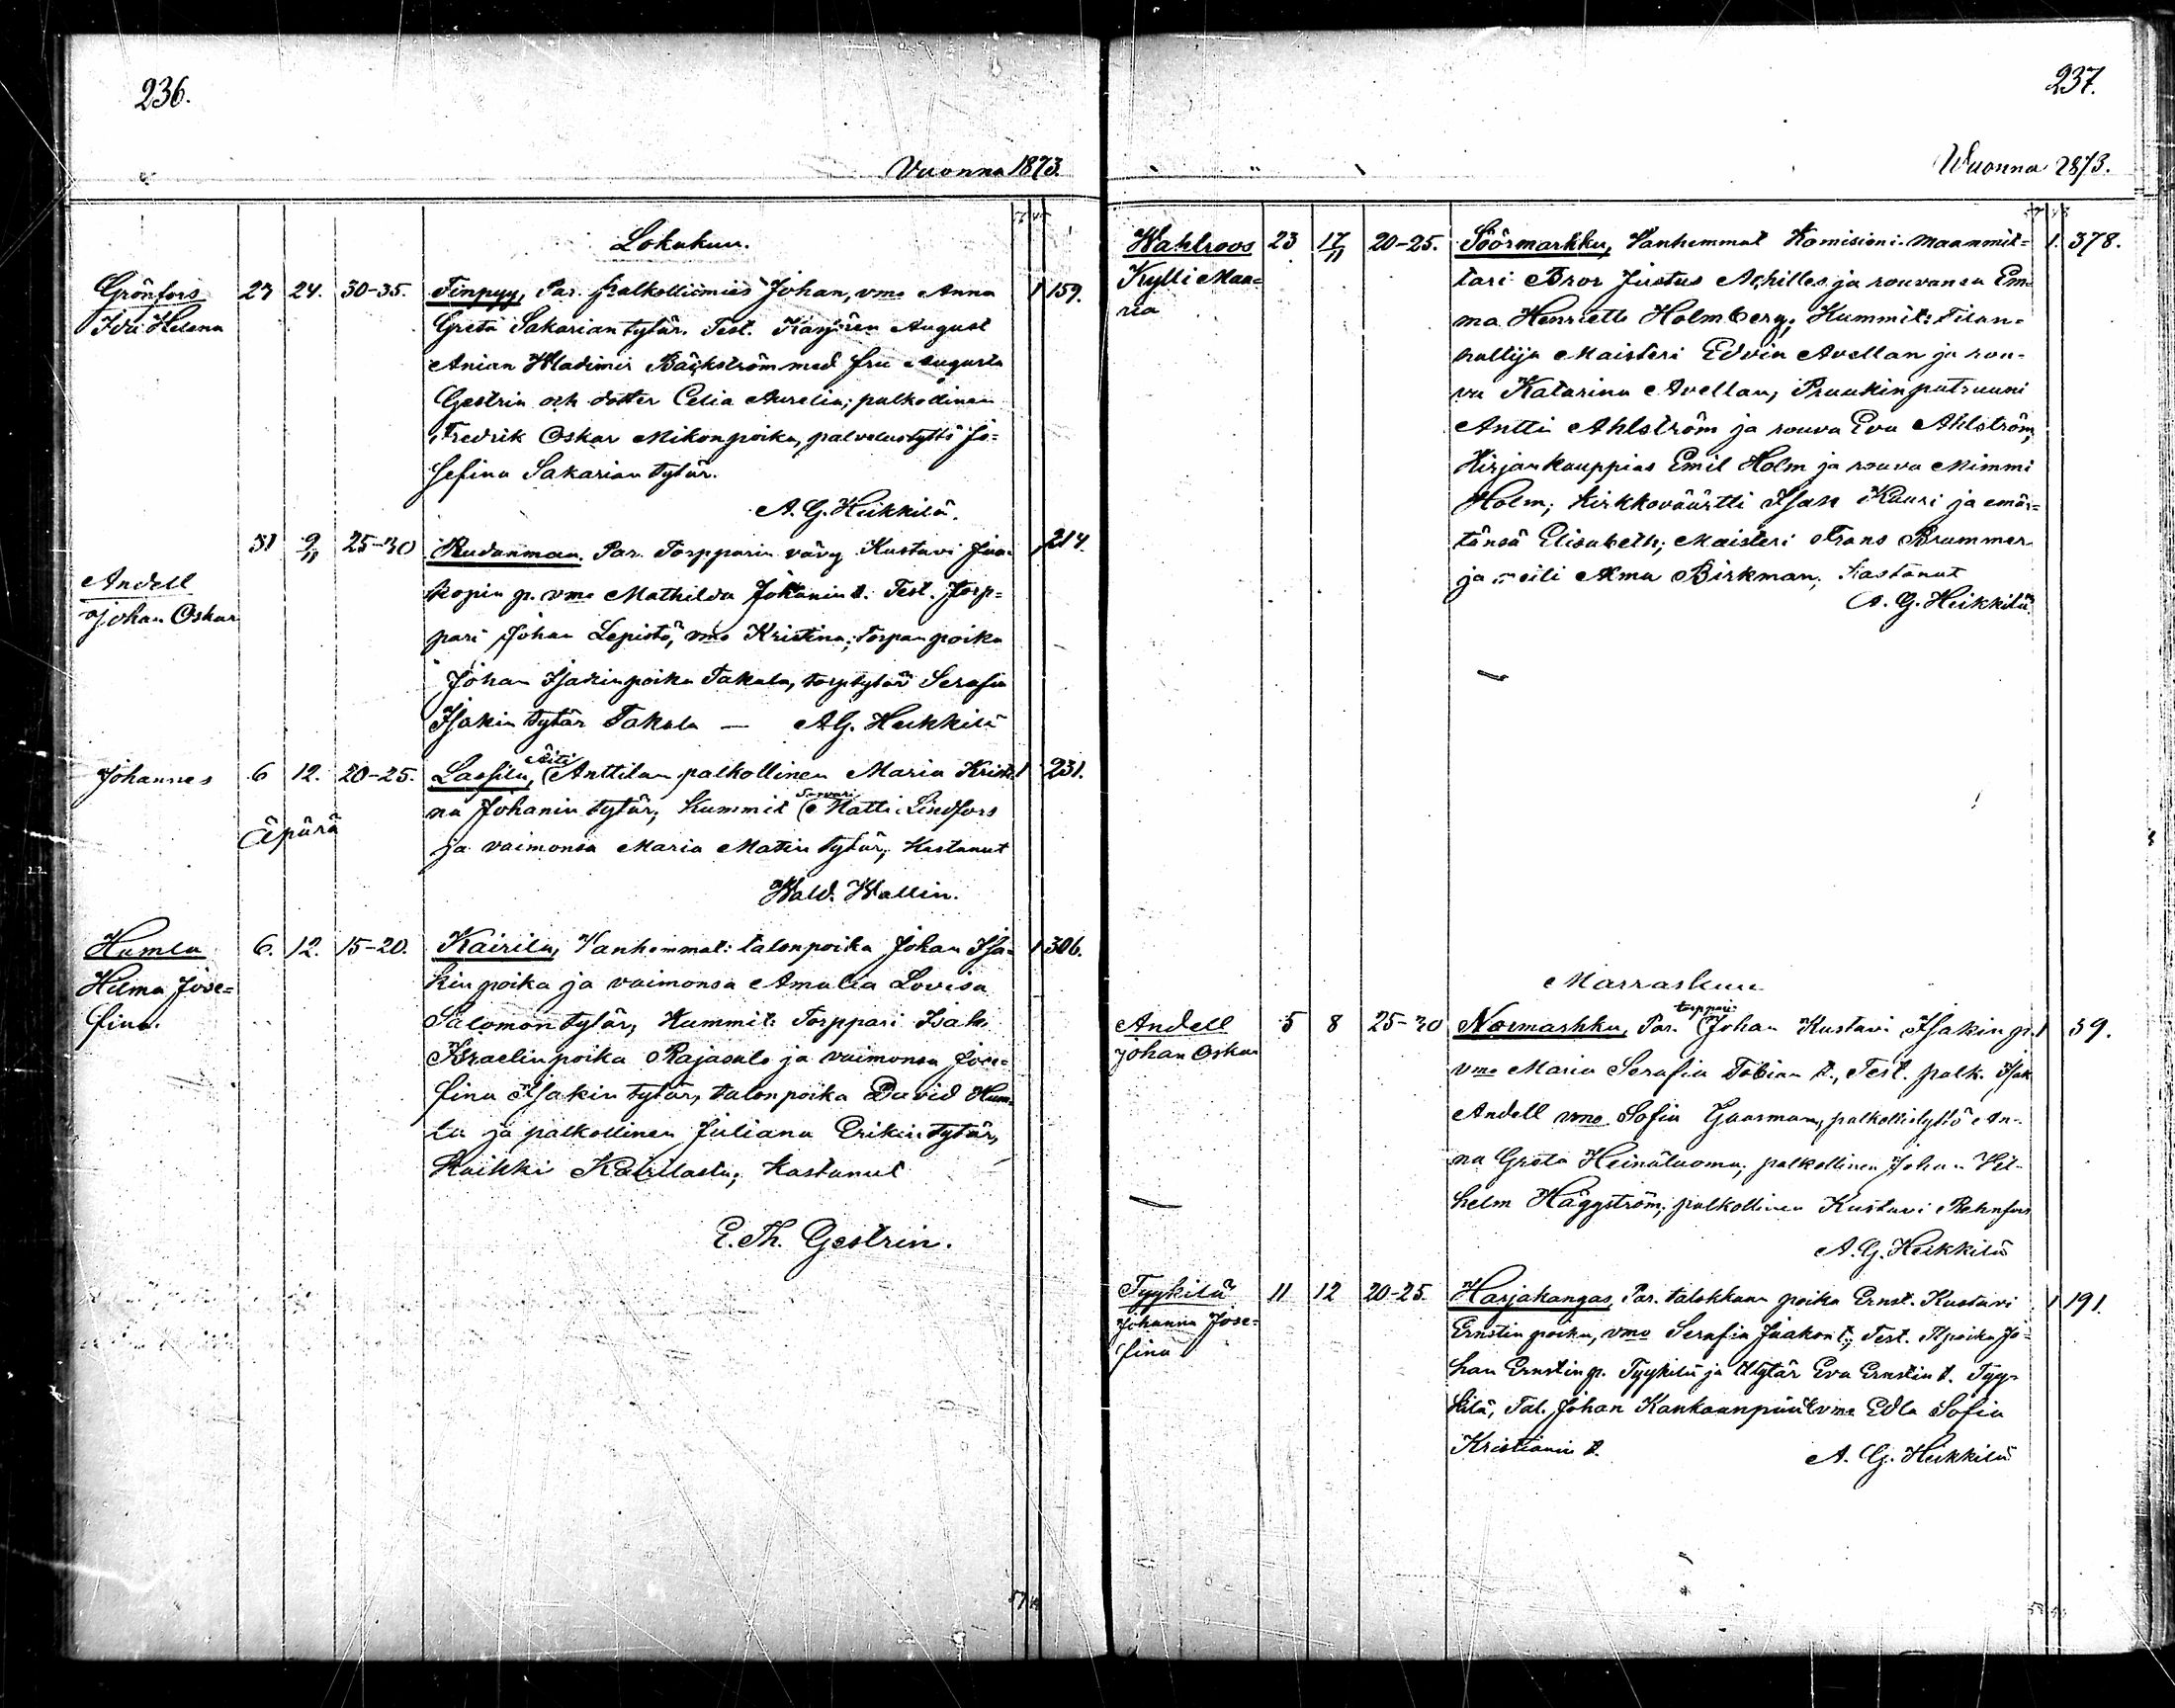 236.
Vuonna 1873.
Lokakuu.
Grönfors 23 24. 30-35. Finpyy, Par. palkollismies Johan, vmo Anna 1 159.
Ida Helena Greta Sakariantytär. Test. August
Anian Wladimir Bäckström med fru Augusta
Gestrin och dotter Celia Aurelia; palkollinen
Fredrik Oskar Mikonpoika, palvelustyttö Jo=
sefina Sakariantytär.
A. G. Heikkilä.
31 9/11 25-30 Rudanmaa. Par. Torpparin vävy Kustavi Jaa- 1 214.
Andell kopin p. vmo Mathilda Johanin t. Test. Torp=
Johan Oskar pari Johan Lepistö, vmo Kristina; torpanpoika
Johan Isakinpoika Takala, torptytär Serafia
Isakin tytär Takala — A.G. Heikkilä
äiti
Johannes 6 12. 20-25. Lassila, Anttilan palkollinen Maria Kristi- 1 231.
na Johanin tytär; Kummit Matti Lindfors
Äpärä
ja vaimonsa Maria Matin tytär; Kastanut
Wald. Wallin.
Humla 6. 12. 15-20. Kairila, Vanhemmat: talonpoika Johan Isa- 1 306.
Hilma Jose= kin poika ja vaimonsa Amalia Lovisa
fina. Salomontytär, Kummit: Torppari Isak
Israelinpoika Rajasalo ja vaimonsa Jose=
fina Isakin tytär, talonpoika David Hum=
la ja palkollinen Juliana Erikin tytär,
Kaikki Kairilasta; Kastanut
E. Th. Gestrin.
237.
Wuonna 1873.
Wahlroos 23 17/11 20-25. Söörmarkku, Vanhemmat Komisioni-maanmit= 1. 378.
Kylli Maa= tari Bror Justus Achilles ja rouvansa Em
ria ma Henriette Holmberg; Kummit: Tilan=
haltija Maisteri Edvin Avellan ja rou-
va Katarina Avellan; Pruukinpatruuni
Antti Ahlström ja rouva Eva Ahlström,
Kirjankauppias Emil Holm ja rouva Mimmi
Holm; Kirkkoväärtti Isak Kauri ja emän=
tänsä Elisabeth; Maisteri Frans Brummer
ja neiti Alma Birkman; Kastanut
A. G. Heikkilä
Marraskuu
torppari
Andell 5 8 25-30 Noormarkku, Par. Johan Kustavi Isakin p. 1 39.
Johan Oskar vmo Maria Serafia Tobian t., Test. palk. Isak
Andell vmo Sofia palkollistyttö An-
na Greta Heinäluoma; palkollinen Johan Vil-
helm Häggström; palkollinen Kustavi Rehnfors
A. G. Heikkilä
Tyykilä 11 12 20-25. Harjakangas, Par. talokkaan poika Ernst. Kustavi 1 191.
Johanna Jose= Ernstin poika, vmo Serafia Jaakon t.; Test. Tlpoika Jo=
fina han Ernstin p. Tyykilä ja tltytär Eva Ernstin t. Tyy-
kilä, Tal. Johan Kankaanpää vmo Edla Sofia
Kristianin t. A. G. Heikkilä